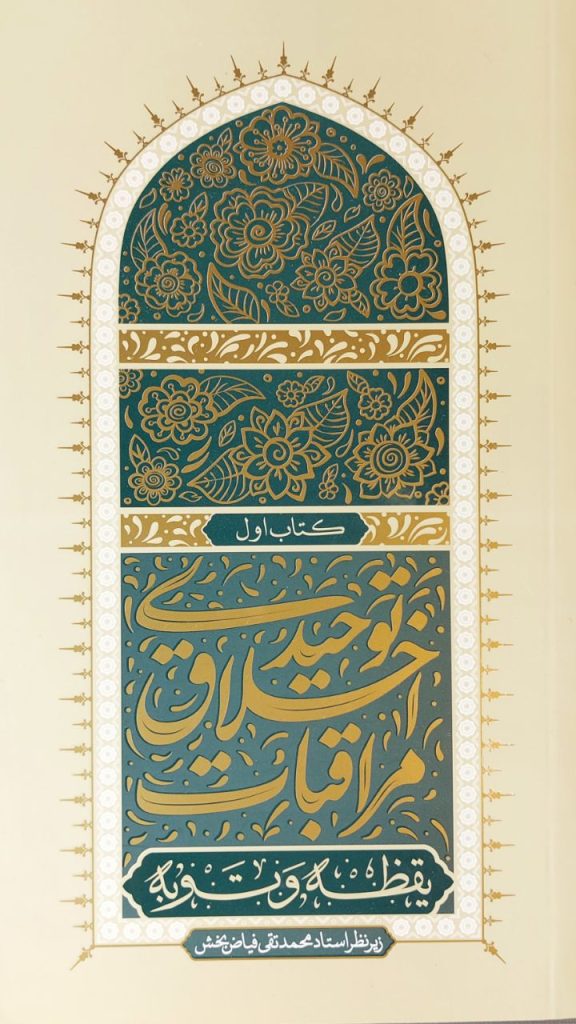 کتاب اول
توحیدی
اخلاق
مراقبات
یقظه و توبه
زیر نظر استاد محمدتقی فیاض‌بخش